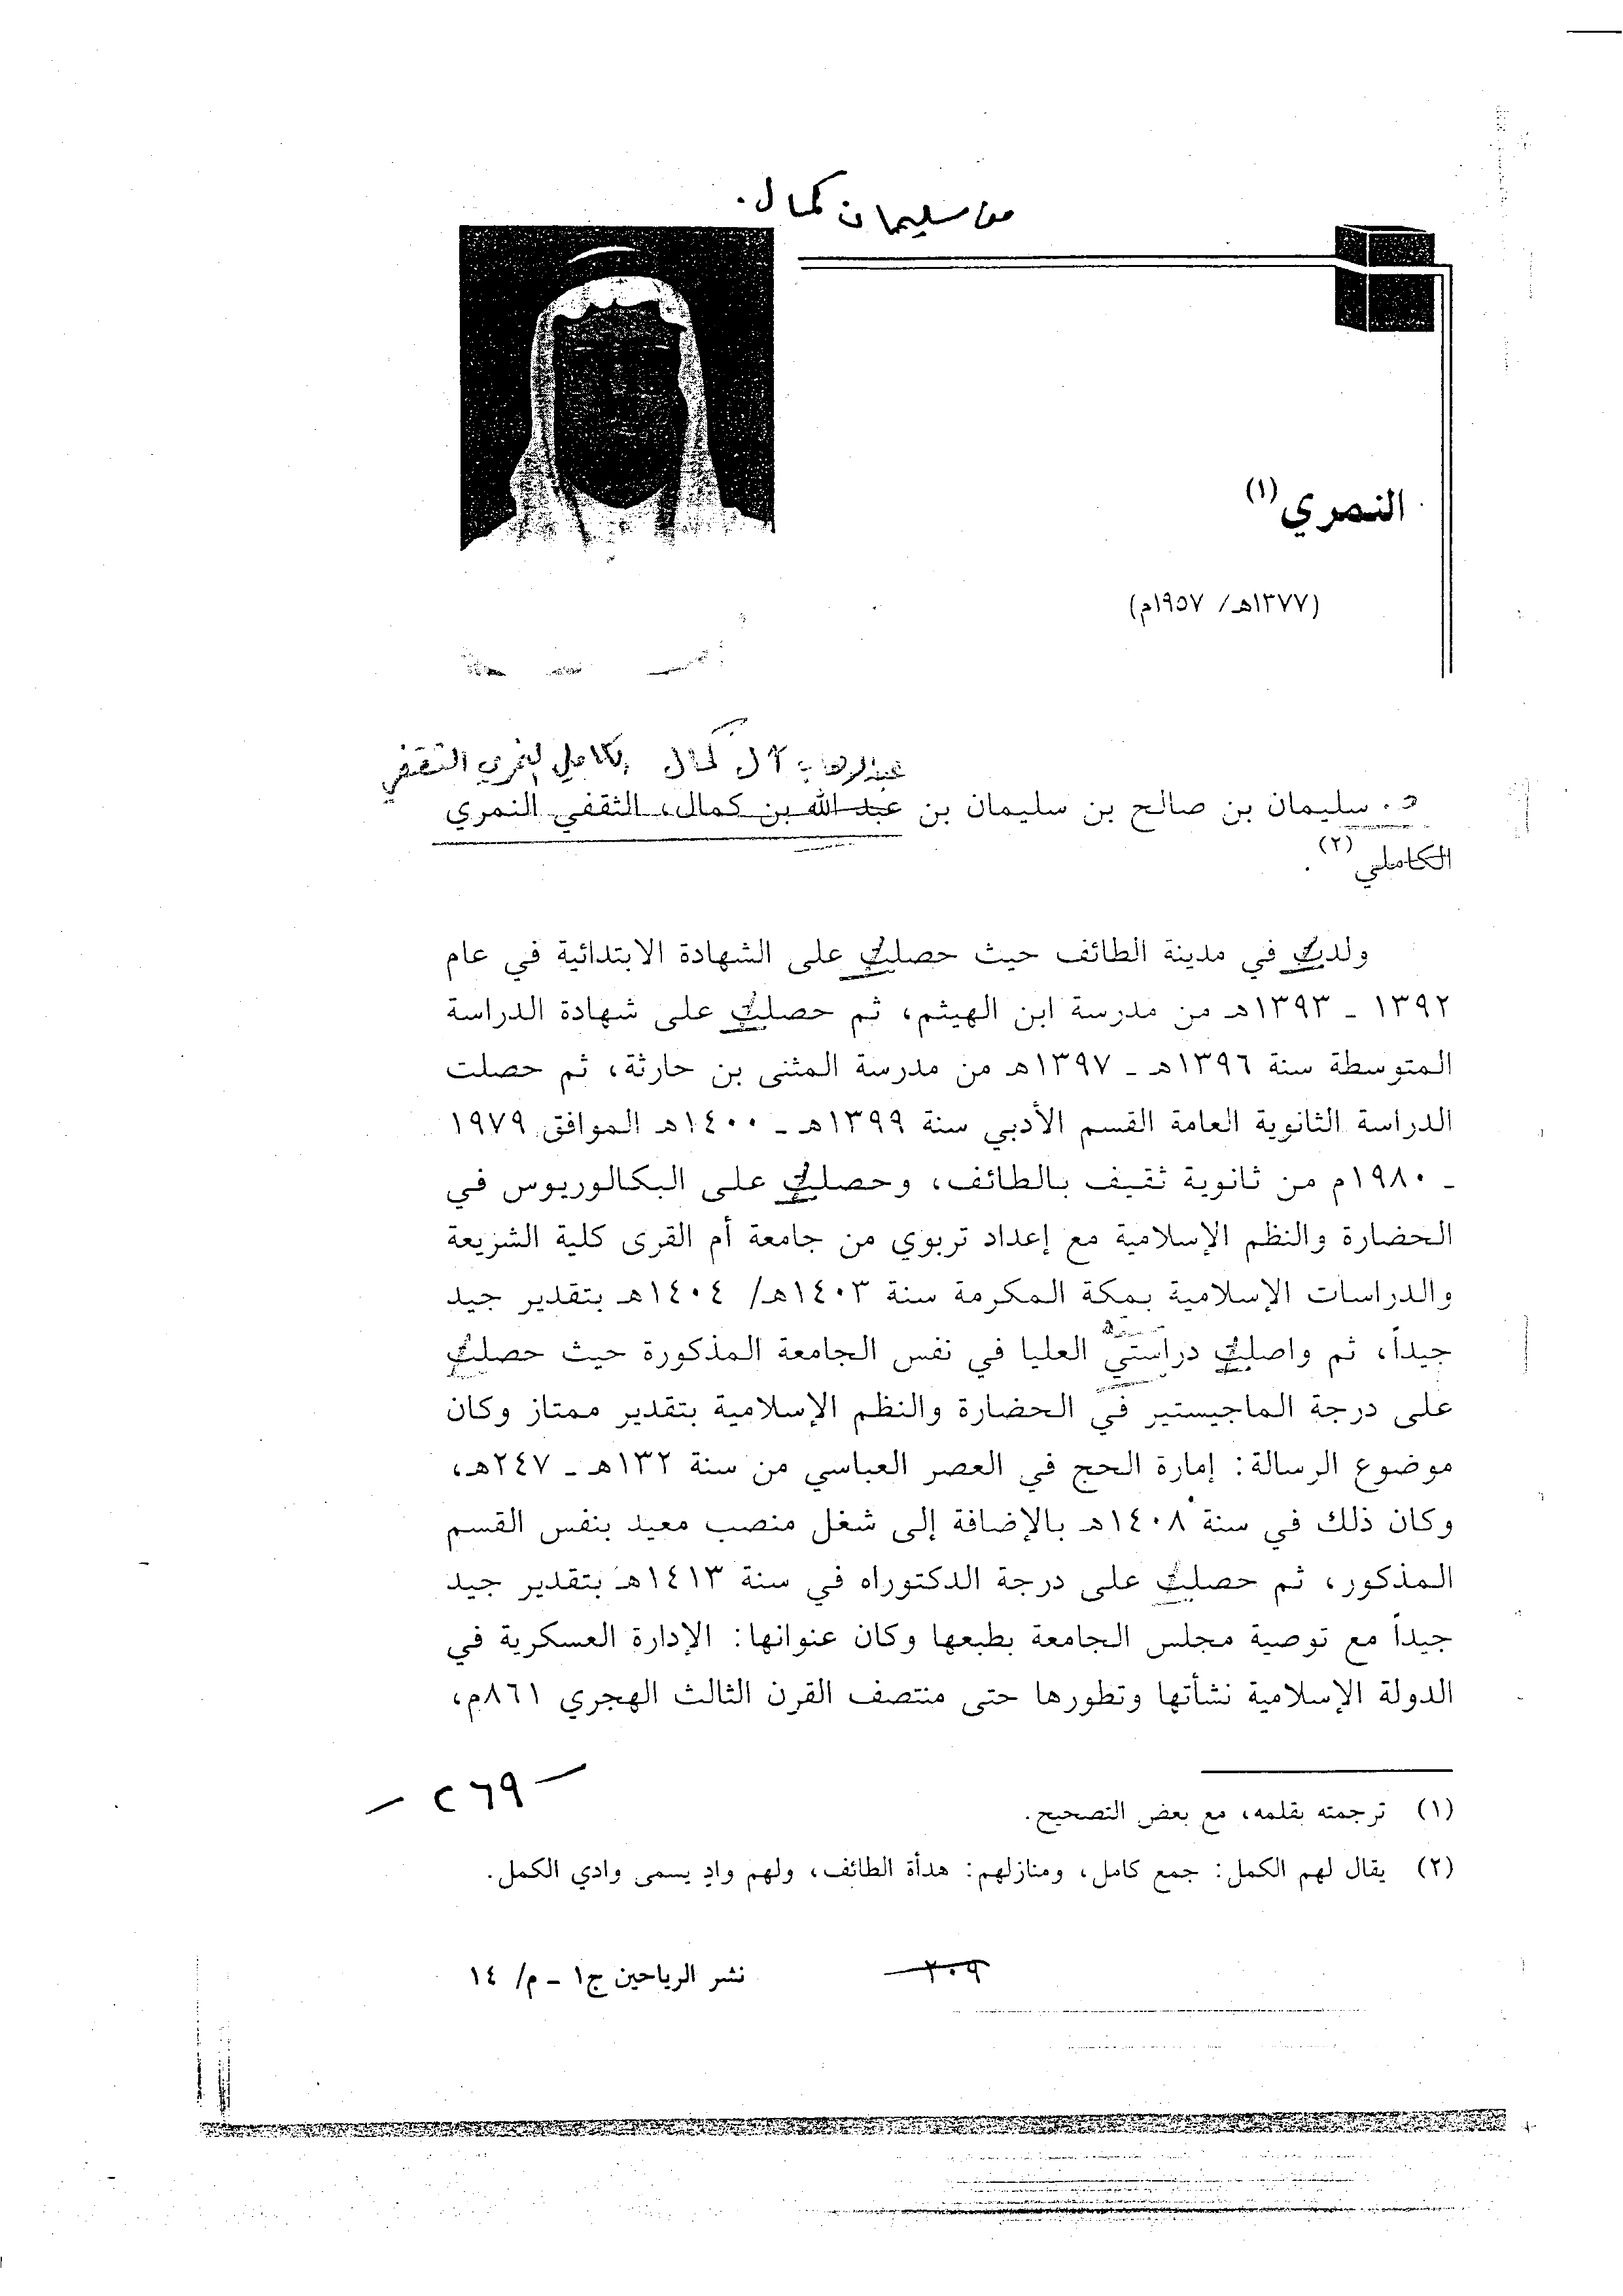 من سليمان كمال.
النمري(١)
(١٣٧٧هـ/ ١٩٥٧م)
عبدالوهاب آل كمال الكاملي النمري الثقفي
د. سليمان بن صالح بن سليمان بن عبد الله بن كمال، الثقفي النمري
الكاملي(٢).
ولدت في مدينة الطائف حيث حصلت على الشهادة الابتدائية في عام
١٣٩٢ - ١٣٩٣هـ من مدرسة ابن الهيثم، ثم حصلت على شهادة الدراسة
المتوسطة سنة ١٣٩٦هـ - ١٣٩٧هـ من مدرسة المثنى بن حارثة، ثم حصلت
الدراسة الثانوية العامة القسم الأدبي سنة ١٣٩٩هـ - ١٤٠٠هـ الموافق ١٩٧٩
- ١٩٨٠م من ثانوية ثقيف بالطائف، وحصلت على البكالوريوس في
الحضارة والنظم الإسلامية مع إعداد تربوي من جامعة أم القرى كلية الشريعة
والدراسات الإسلامية بمكة المكرمة سنة ١٤٠٣هـ/ ١٤٠٤هـ بتقدير جيد
جيداً، ثم واصلت دراستي العليا في نفس الجامعة المذكورة حيث حصلت
على درجة الماجيستير في الحضارة والنظم الإسلامية بتقدير ممتاز وكان
موضوع الرسالة: إمارة الحج في العصر العباسي من سنة ١٣٢هـ - ٢٤٧هـ،
وكان ذلك في سنة ١٤٠٨هـ بالإضافة إلى شغل منصب معيد بنفس القسم
المذكور، ثم حصلت على درجة الدكتوراه في سنة ١٤١٣هـ بتقدير جيد
جيداً مع توصية مجلس الجامعة بطبعها وكان عنوانها: الإدارة العسكرية في
الدولة الإسلامية نشأتها وتطورها حتى منتصف القرن الثالث الهجري ٨٦١م،
- ٢٦٩ -
(١) ترجمته بقلمه، مع بعض التصحيح.
(٢) يقال لهم الكمل: جمع كامل، ومنازلهم: هدأة الطائف، ولهم وادٍ يسمى وادي الكمل.
٢٠٩
نشر الرياحين ج١ - م/ ١٤